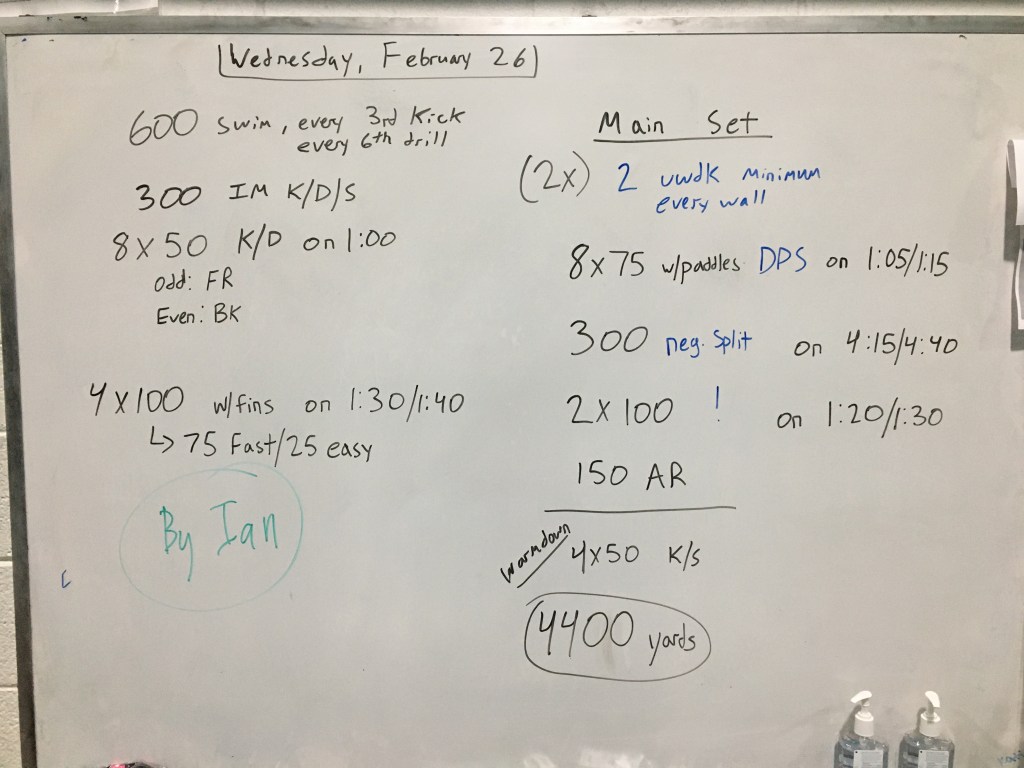 Wednesday, February 26
600 swim, every 3rd Kick
every 6th drill
300 IM K/D/S
8x50 K/D on 1:00
odd: FR
Even: BK
4x100 w/fins on 1:30/1:40
↳ 75 Fast/25 easy
By Ian
Main Set
(2x) 2 uwdk minimum
every wall
8x75 w/paddles DPS on 1:05/1:15
300 neg. split on 4:15/4:40
2x100 ! on 1:20/1:30
150 AR
Warmdown 4x50 K/S
4400 yards